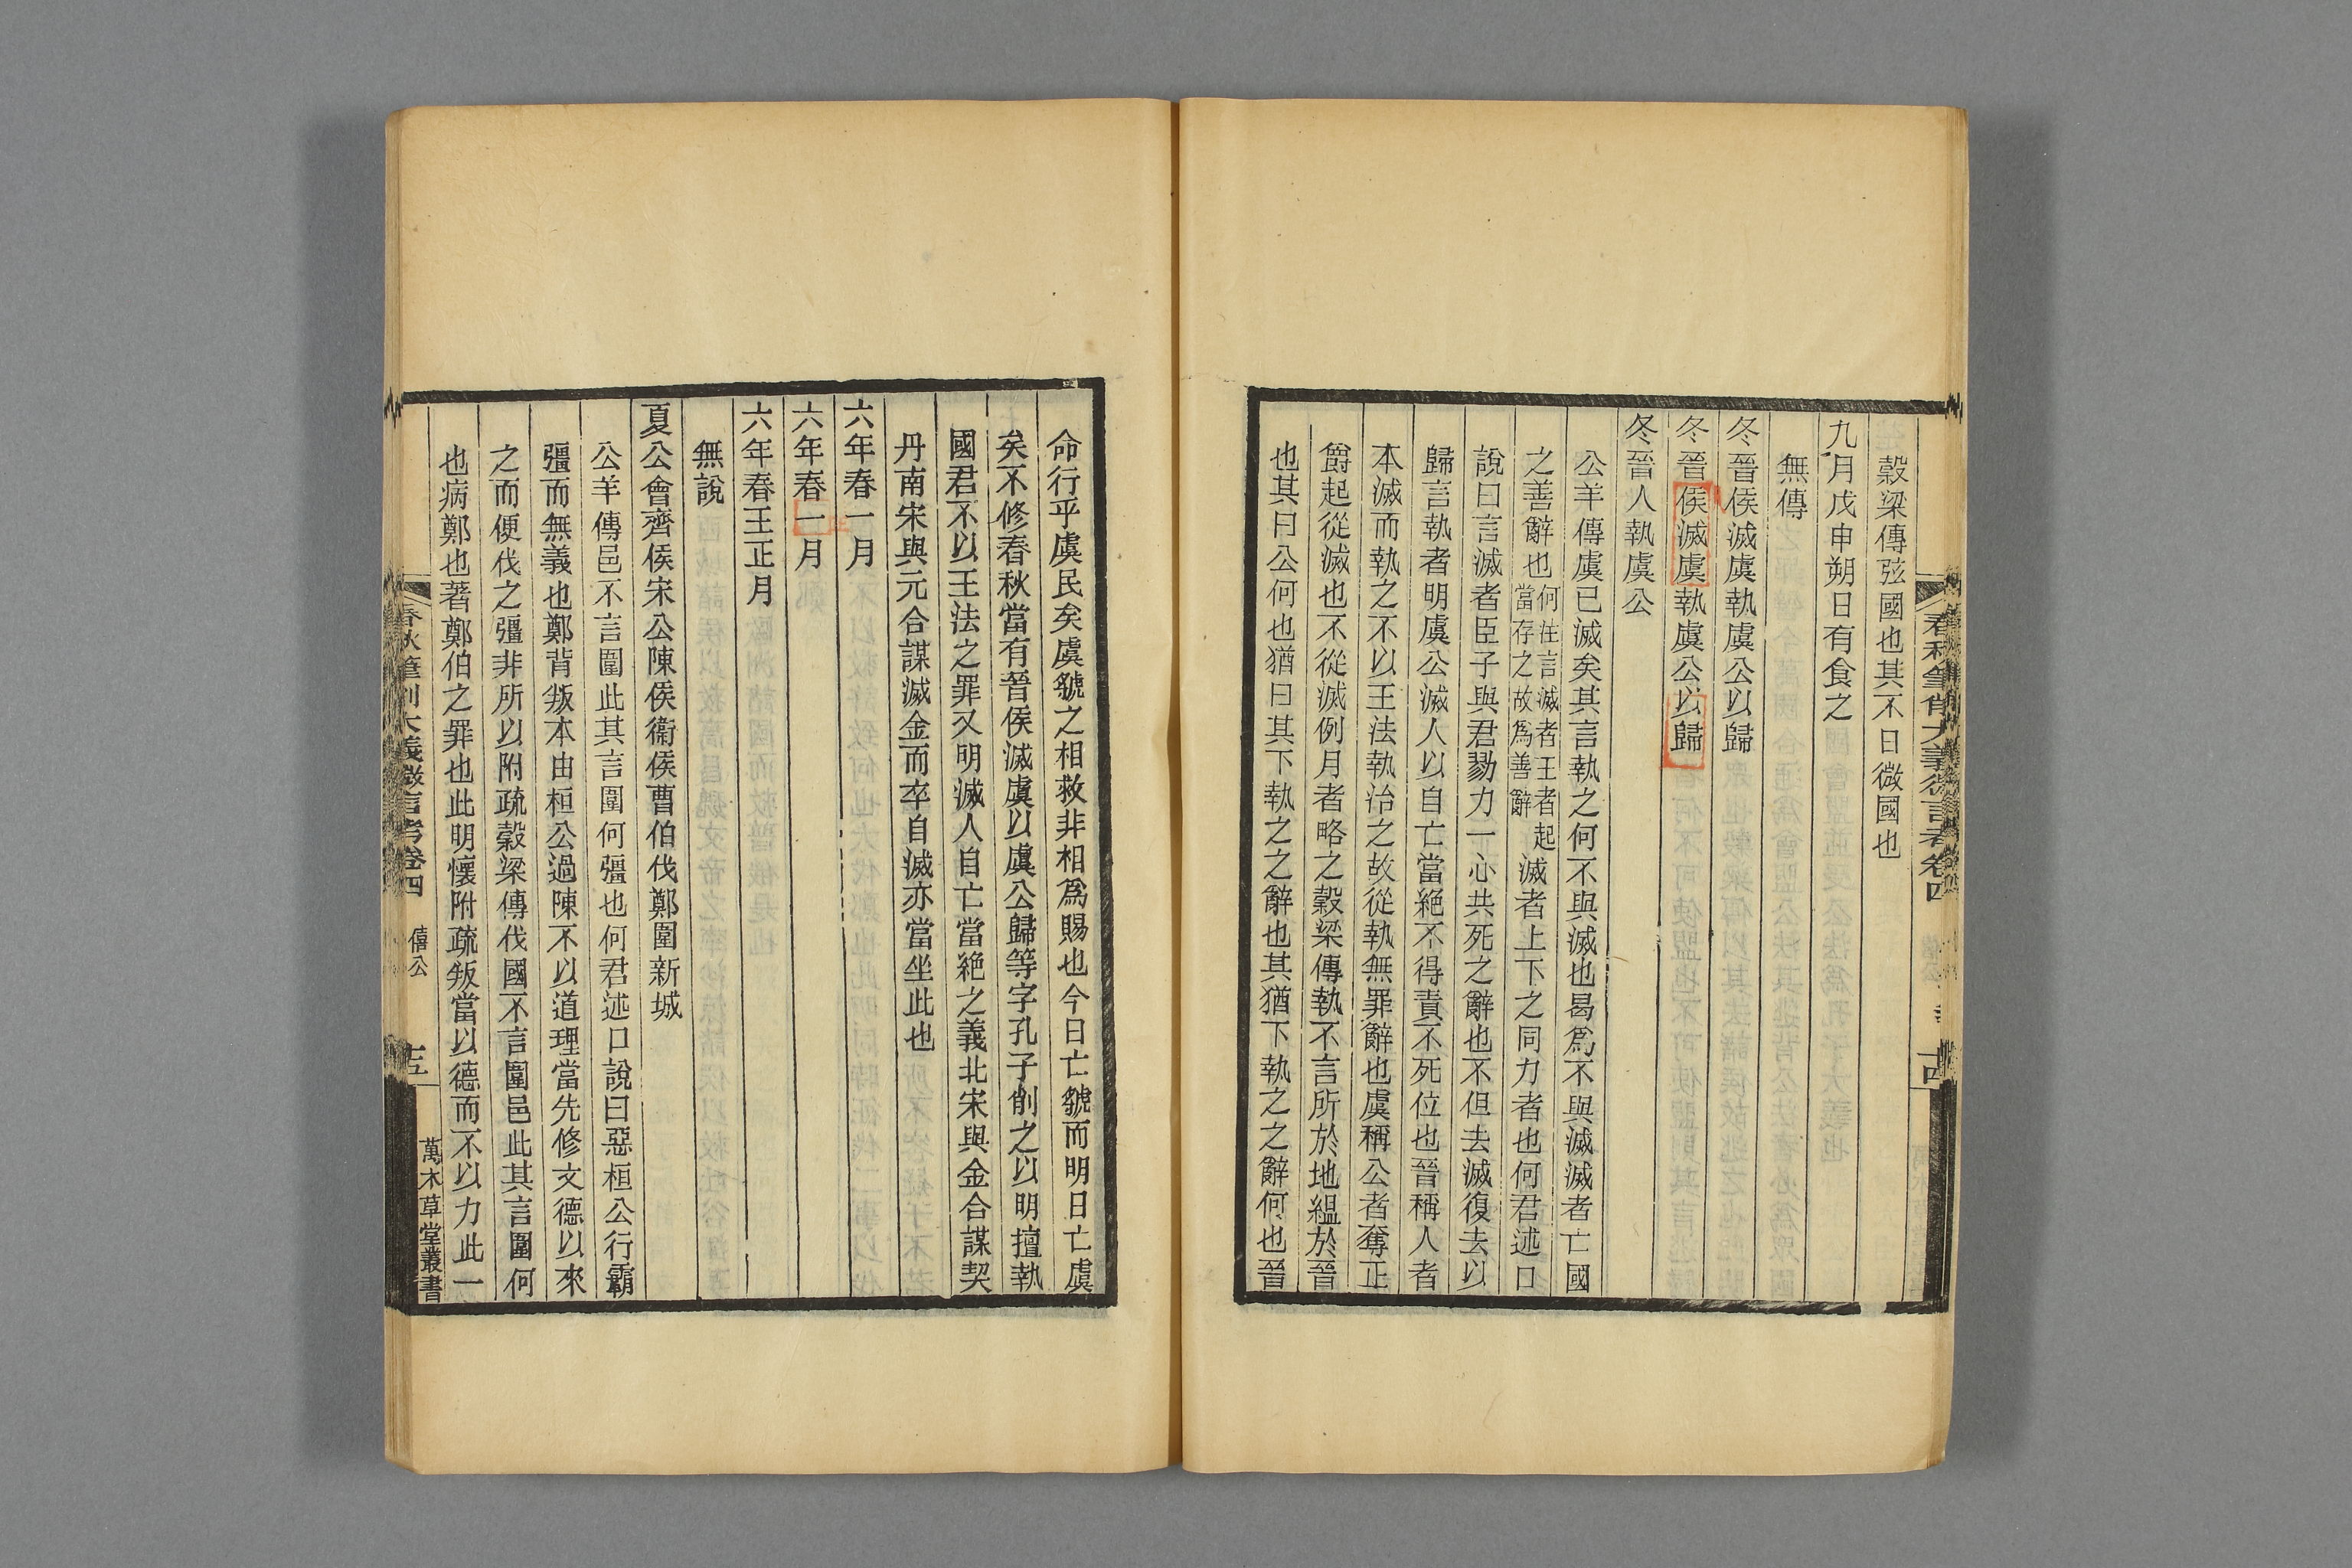 穀梁傳弦國也其不日微國也
九月戊申朔日有食之
無傳
冬晉侯滅虞執虞公以歸
冬晉侯滅虞執虞公以歸
冬晉人執虞公
公羊傳虞已滅矣其言執之何不與滅也曷爲不與滅滅者亡國
之善辭也何注言滅者王者起當存之故爲善辭滅者上下之同力者也何君述口
說曰言滅者臣子與君勠力一心共死之辭也不但去滅復去以
歸言執者明虞公滅人以自亡當絕不得責不死位也晉稱人者
本滅而執之不以王法執治之故從執無罪辭也虞稱公者奪正
爵起從滅也不從滅例月者略之穀梁傳執不言所於地縕於晉
也其曰公何也猶曰其下執之之辭也其猶下執之之辭何也晉
命行乎虞民矣虞虢之相救非相爲賜也今日亡虢而明日亡虞
矣不修春秋當有晉侯滅虞以虞公歸等字孔子削之以明擅執
國君不以王法之罪又明滅人自亡當絕之義北宋與金合謀契
丹南宋與元合謀滅金而卒自滅亦當坐此也
六年春一月
六年春一月
正
六年春王正月
無說
夏公會齊侯宋公陳侯衞侯曹伯伐鄭圍新城
公羊傳邑不言圍此其言圍何彊也何君述口說曰惡桓公行霸
彊而無義也鄭背叛本由桓公過陳不以道理當先修文德以來
之而便伐之彊非所以附疏穀梁傳伐國不言圍邑此其言圍何
也病鄭也著鄭伯之罪也此明懷附疏叛當以德而不以力此一
春秋筆削大義微言考卷四 僖公 十五 萬木草堂叢書